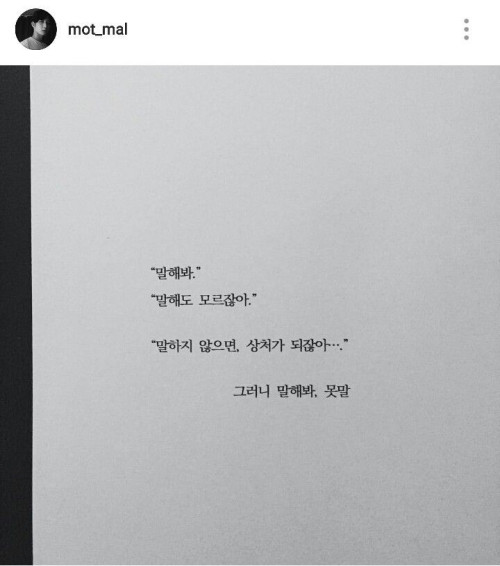 mot_mal
“말해봐.”
“말해도 모르잖아.”
“말하지 않으면, 상처가 되잖아….”
그러니 말해봐, 못말